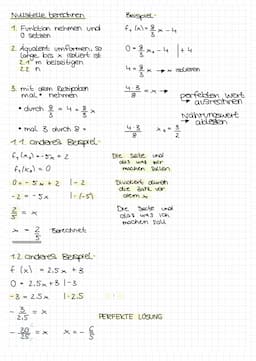 Nullstelle berechnen
1. Funktion nehmen und
0 setzen
2. Äquivalent umformen, so
lange bis x isoliert ist
3. mit dem Reziproken
mal nehmen
• durch 8/3 = 4 ÷ 8/3 x
• mal 3 durch 8 =
Beispiel:
f₁(x) = 8/3 x - 4
0 = 8/3 x - 4 | + 4
4 = 8/3 x → x isolieren
4·3/8 = x → perfekten Wert
→ ausrechnen
→ Näherungswert
ablesen
4·3/8 x = 3/2
1.1. anderes Beispiel:
f₁(x) = -5x + 2
f₁(x₀) = 0
0 = -5x + 2 | -2
-2 = -5x | :(-5)
2/5 = x
x = 2/5 Berechnet
Die Seite und
das was wir
machen sollen
Dividiert durch
die Zahl vor
dem x
Die Seite und
das was ich
machen soll
1.2 anderes Beispiel:
f(x) = 2.5x + 3
0 = 2.5x + 3 | -3
-3 = 2.5x | :2.5
- 3/2.5 = x
- 30/25 = x x = - 6/5
PERFEKTE LÖSUNG